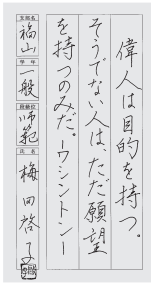 偉人は目的を持つ。
そうでない人は、ただ願望
を持つのみだ。ーワシントンー
支部名
福山
学年
一般
段級位
師範
氏名
梅田啓子